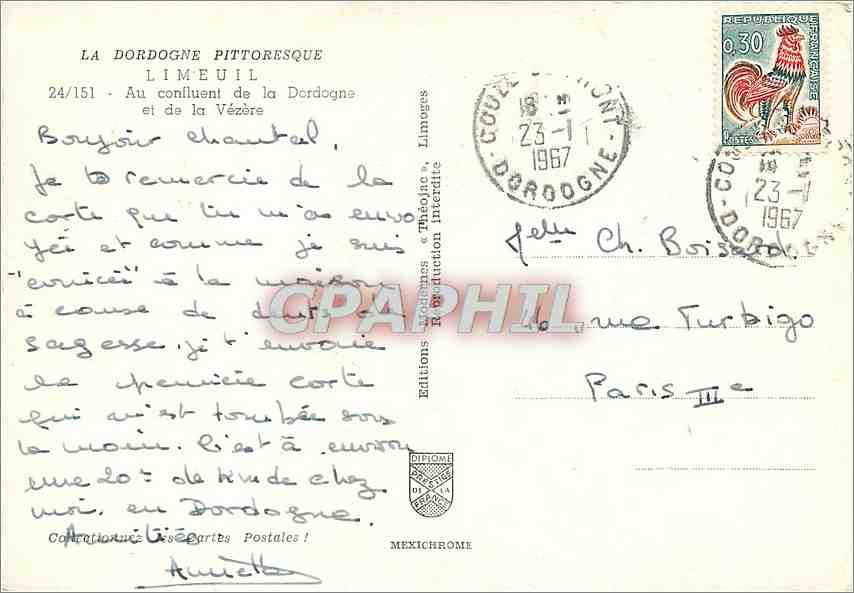 LA DORDOGNE PITTORESQUE
LIMEUIL
24/151 - Au confluent de la Dordogne
et de la Vézère
Bonjour Chantal,
Je te remercie de la
carte que tu m'as envo
yée et comme je suis
"coincée" à la maison
à cause de dents de
sagesse, je t'envoie
la première carte
qui m'est tombée sous
la main. C'est à environ
une 20ne de km de chez
moi en Dordogne.
Amitiés
Collectionnez les Cartes Postales !
Editions Modernes « Théojac », Limoges
Reproduction interdite
DIPLOME
PRESTIGE
DE LA
FRANCE
MEXICHROME
REPUBLIQUE
FRANÇAISE
0,30
18 H
23-1
1967
DORDOGNE
23-1
1967
DORDOGNE
Melle Ch. Boisard.
rue Turbigo
Paris IIIe
CPAPHIL